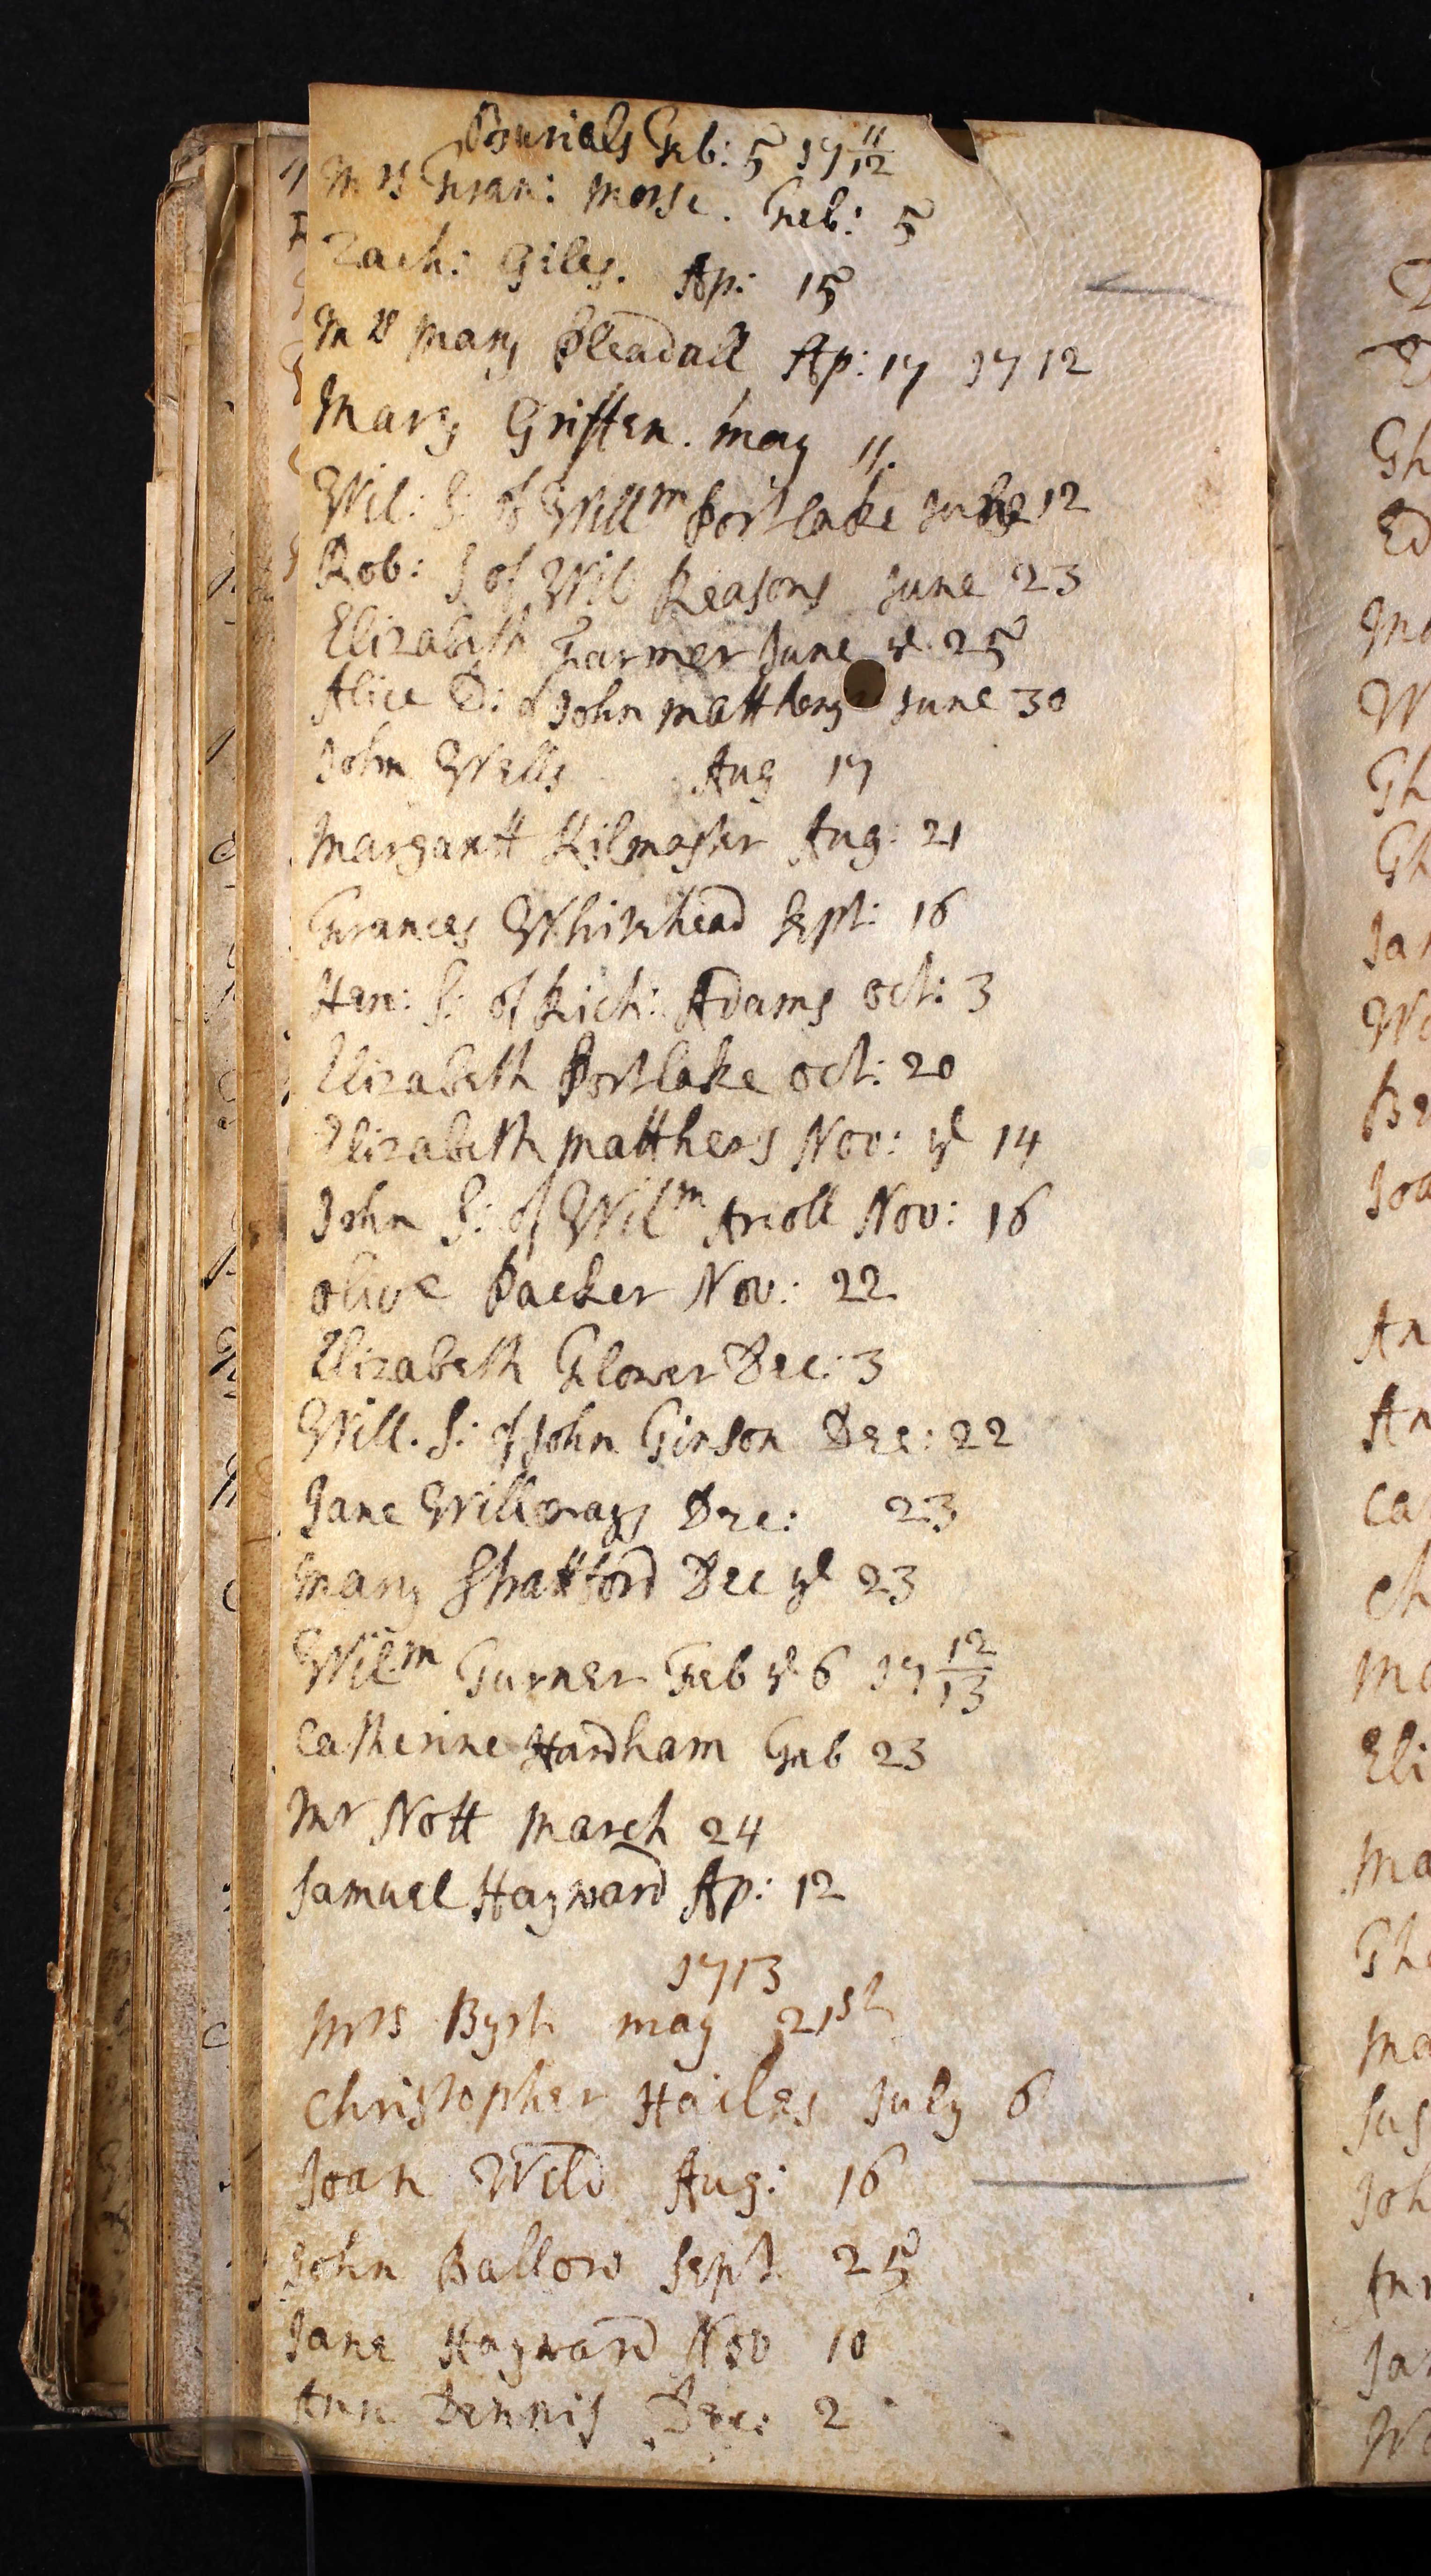 Burials Feb: 5 17 11/12
Mrs Fran: Morse. Feb: 5
Zach: Giles. Ap: 15
Mrs Mary Pleadall Ap: 17 1712
Mary Griffen. May 11.
Wil: S: of Willm Portlake June 12
Rob: S of Wil Reasons June 23
Elizabeth Farmer June ye 25
Alice D: of John Matthews June 30
John Wells Aug 17
Margarett Kilmaster Aug: 21
Frances Whitehead Sept: 16
Hen: S: of Rich: Adams Oct: 3
Elizabeth Portlake Oct: 20
Elizabeth Matthews Nov: ye 14
John S: of Wilm Arioll Nov: 16
Olive Packer Nov: 22
Elizabeth Glower Dec: 3
Will. S: of John Ginson Dec: 22
Jane Willways Dec: 23
Mary Strattford Dec ye 23
Wilm Turner Feb ye 6 17 12/13
Catherine Hardham Feb 23
Mr Nott March 24
Samuel Hayward Ap: 12
1713
Mrs Byrt May 21st
Christopher Hailes July 6
Joan Wild Aug: 16
John Ballow Sept 25
Jane Hayward Nov 10
Ann Dennis Dec: 2